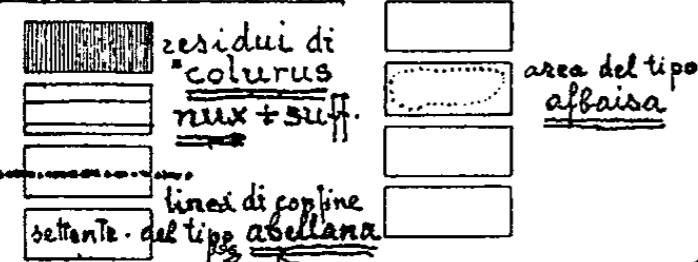 residui di
*colurus
nux + suff.
linea di confine
settentr. del tipo abellana
area del tipo
afbaisa